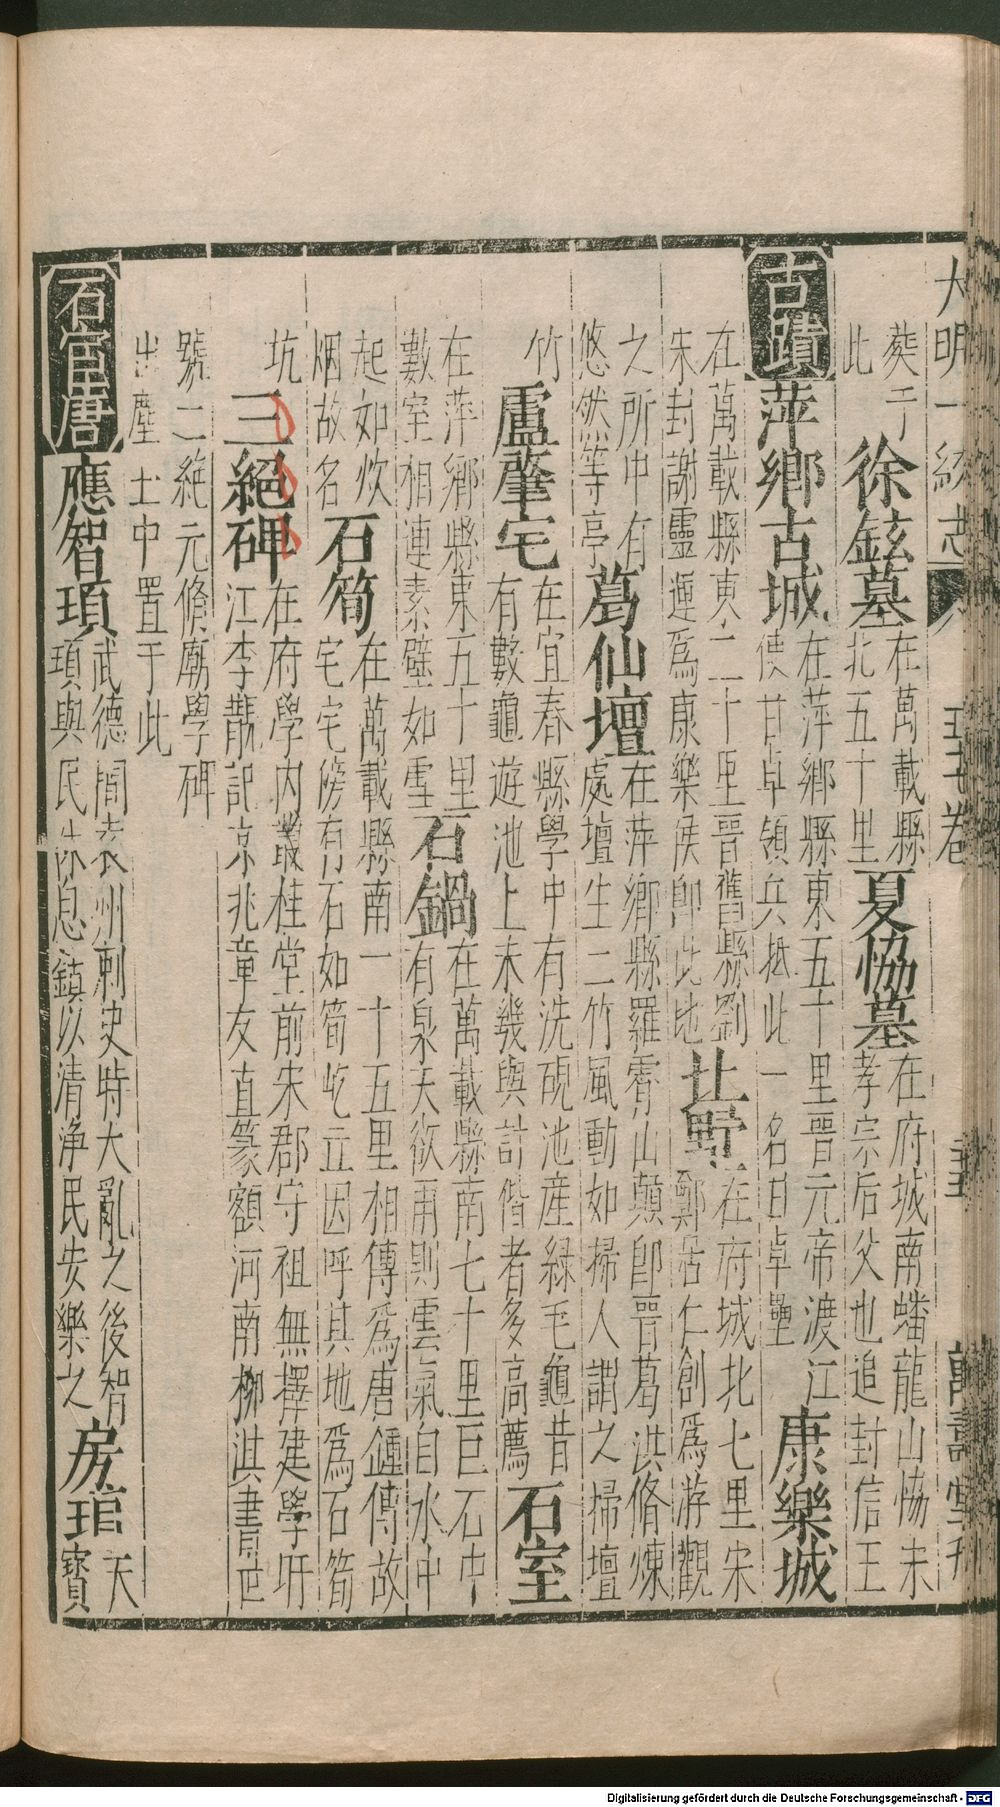 大明一統志 卷 萬壽堂刊
葬于此 徐鉉墓 在萬載縣北五十里 夏恊墓 在府城南蟠龍山恊未孝宗后父也追封信王
古蹟 萍鄉古城 在萍鄉縣東五十里晉元帝渡江使甘卓領兵抵此一名甘卓壘 康樂城
在萬載縣東二十里晉舊縣劉宋封謝靈運爲康樂侯即此地 野 在府城北七里宋鄭居仁創爲游觀
之所中有悠然等亭 葛仙壇 在萍鄉縣羅霄山顛即晉葛洪脩煉處壇生二竹風動如掃人謂之掃壇
竹 盧肇宅 在宜春縣學中有洗硯池産緑毛龜昔有數龜遊池上未幾與計偕者多高薦 石室
在萍鄉縣東五十里數室相連素壁如雪 石鍋 在萬載縣南七十里巨石中有泉天欲雨則雲氣自水中
起如炊烟故名 石筍 在萬載縣南一十五里相傳爲唐鍾傳故宅宅傍有石如筍屹立因呼其地爲石筍
坑 三絕碑 在府學内叢桂堂前宋郡守祖無擇建學旴江李覯記京兆章友直篆額河南柳淇書世
號三絕元脩廟學碑出塵土中置于此
名宦 唐 應智頊 武德間袁州刺史時大亂之後智頊與民休息鎮以清淨民安樂之 房琯 天寶
Digitalisierung gefördert durch die Deutsche Forschungsgemeinschaft - DFG